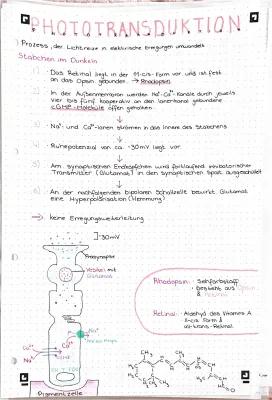 PHOTOTRANSDUKTION
Prozess, der Lichtreize in elektrische Erregungen umwandelt
Stäbchen im Dunkeln
1) Das Retinal liegt in der 11-cis-Form vor und ist fest
an das Opsin gebunden. → Rhodopsin
2) In der Außenmembran werden Na⁺-Ca²⁺-Kanäle durch jeweils
vier bis fünf kooperativ an den Ionenkanal gebundene
cGMP-Moleküle offen gehalten
3) Na⁺- und Ca²⁺-Ionen strömen in das Innere des Stäbchens
4) Ruhepotenzial von ca. -30mV liegt vor
5) Am synaptischen Endknöpfchen wird fortlaufend inhibitorischer
Transmitter (Glutamat) in den synaptischen Spalt ausgeschüttet
6) An der nachfolgenden bipolaren Schaltzelle bewirkt Glutamat
eine Hyperpolarisation (Hemmung)
→ keine Erregungsweiterleitung
-30mV
Präsynapse
Vesikel mit
Glutamat
Rhodopsin: Sehfarbstoff
- besteht aus Opsin
& Retinal
Retinal: Aldehyd des Vitamins A
11-cis Form &
all-trans-Retinal
Na⁺
Ca²⁺
Ca²⁺
Na⁺
Pigmentzelle
CH₃
CH₃
H₃C